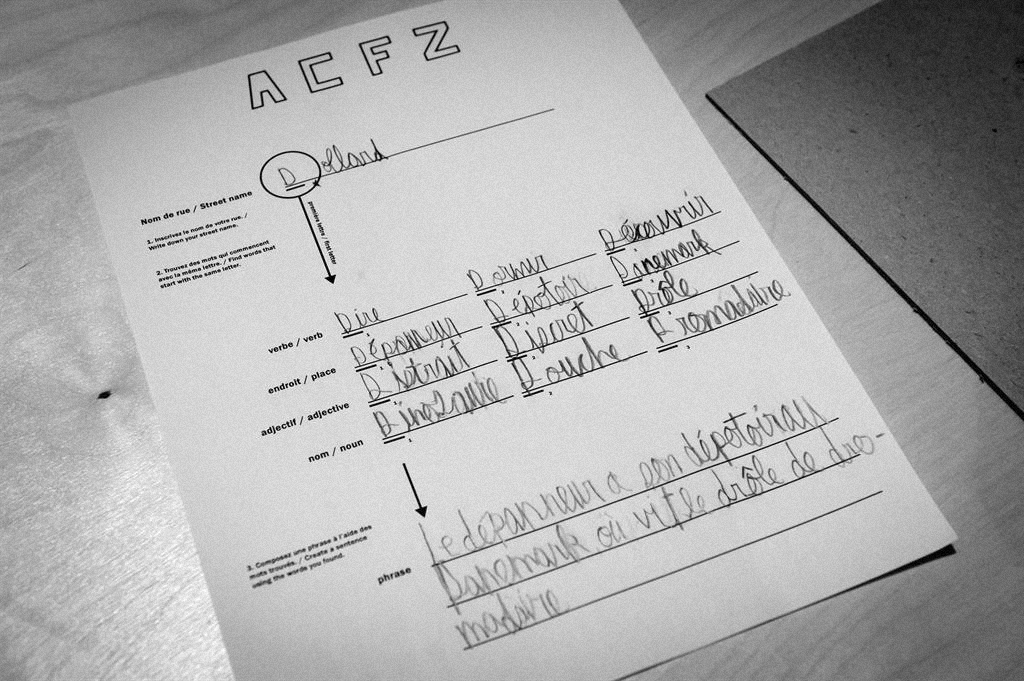 ACFZ
Dollard
Nom de rue / Street name
1. Inscrivez le nom de votre rue. /
Write down your street name.
première lettre / first letter
2. Trouvez des mots qui commencent
avec la même lettre. / Find words that
start with the same letter.
verbe / verb Dire Dormir Découvrir
endroit / place Dépanneur Dépotoir Danemark
adjectif / adjective Distrait Discret Drôle
1 2 3
nom / noun Dinosaure Douche Dromadaire
1 2 3
3. Composez une phrase à l'aide des
mots trouvés. / Create a sentence
using the words you found.
phrase
le dépanneur a son dépotoir au
Danemark où vit le drôle de dro-
madaire